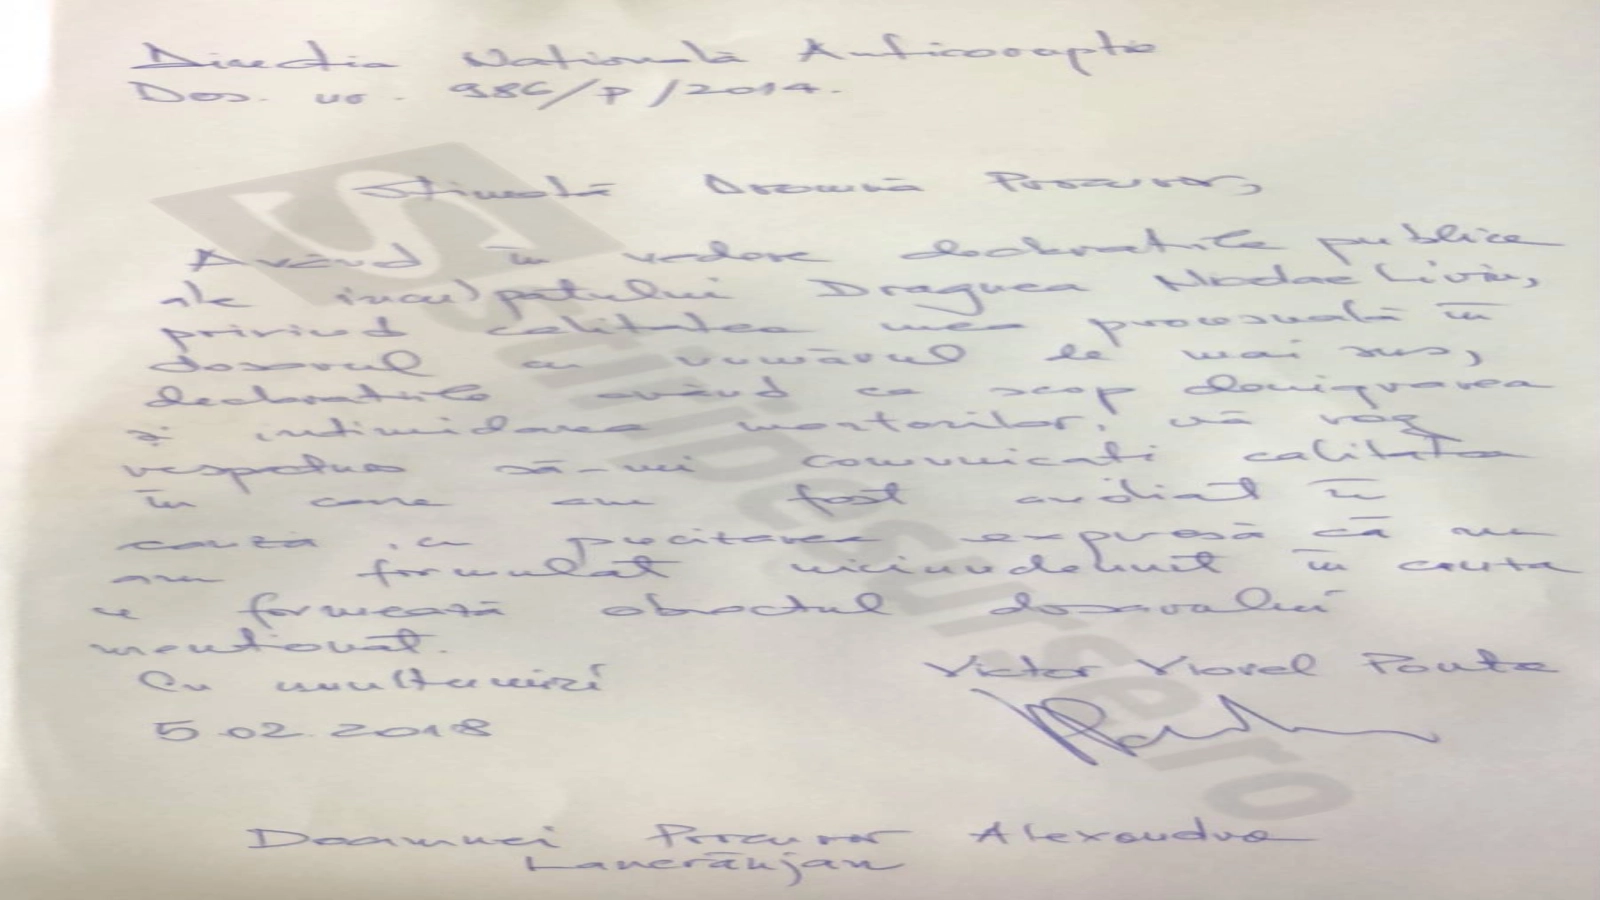 Direcția Națională Anticorupție
Dos. nr. 986/P/2014.
Stimată Doamnă Procuror,
Având în vedere declarațiile publice
ale inculpatului Dragnea Nicolae Liviu,
privind calitatea mea procesuală în
dosarul cu numărul de mai sus,
declarațiile având ca scop denigrarea
și intimidarea martorilor, vă rog
respectuos să-mi comunicați calitatea
în care am fost audiat în
cauză, cu precizarea expresă că nu
am formulat niciun denunț în cauza
ce formează obiectul dosarului
menționat.
Cu mulțumiri
Victor Viorel Ponta
5.02.2018
Doamnei Procuror Alexandra
Lancrănjan
stiripesurse.ro